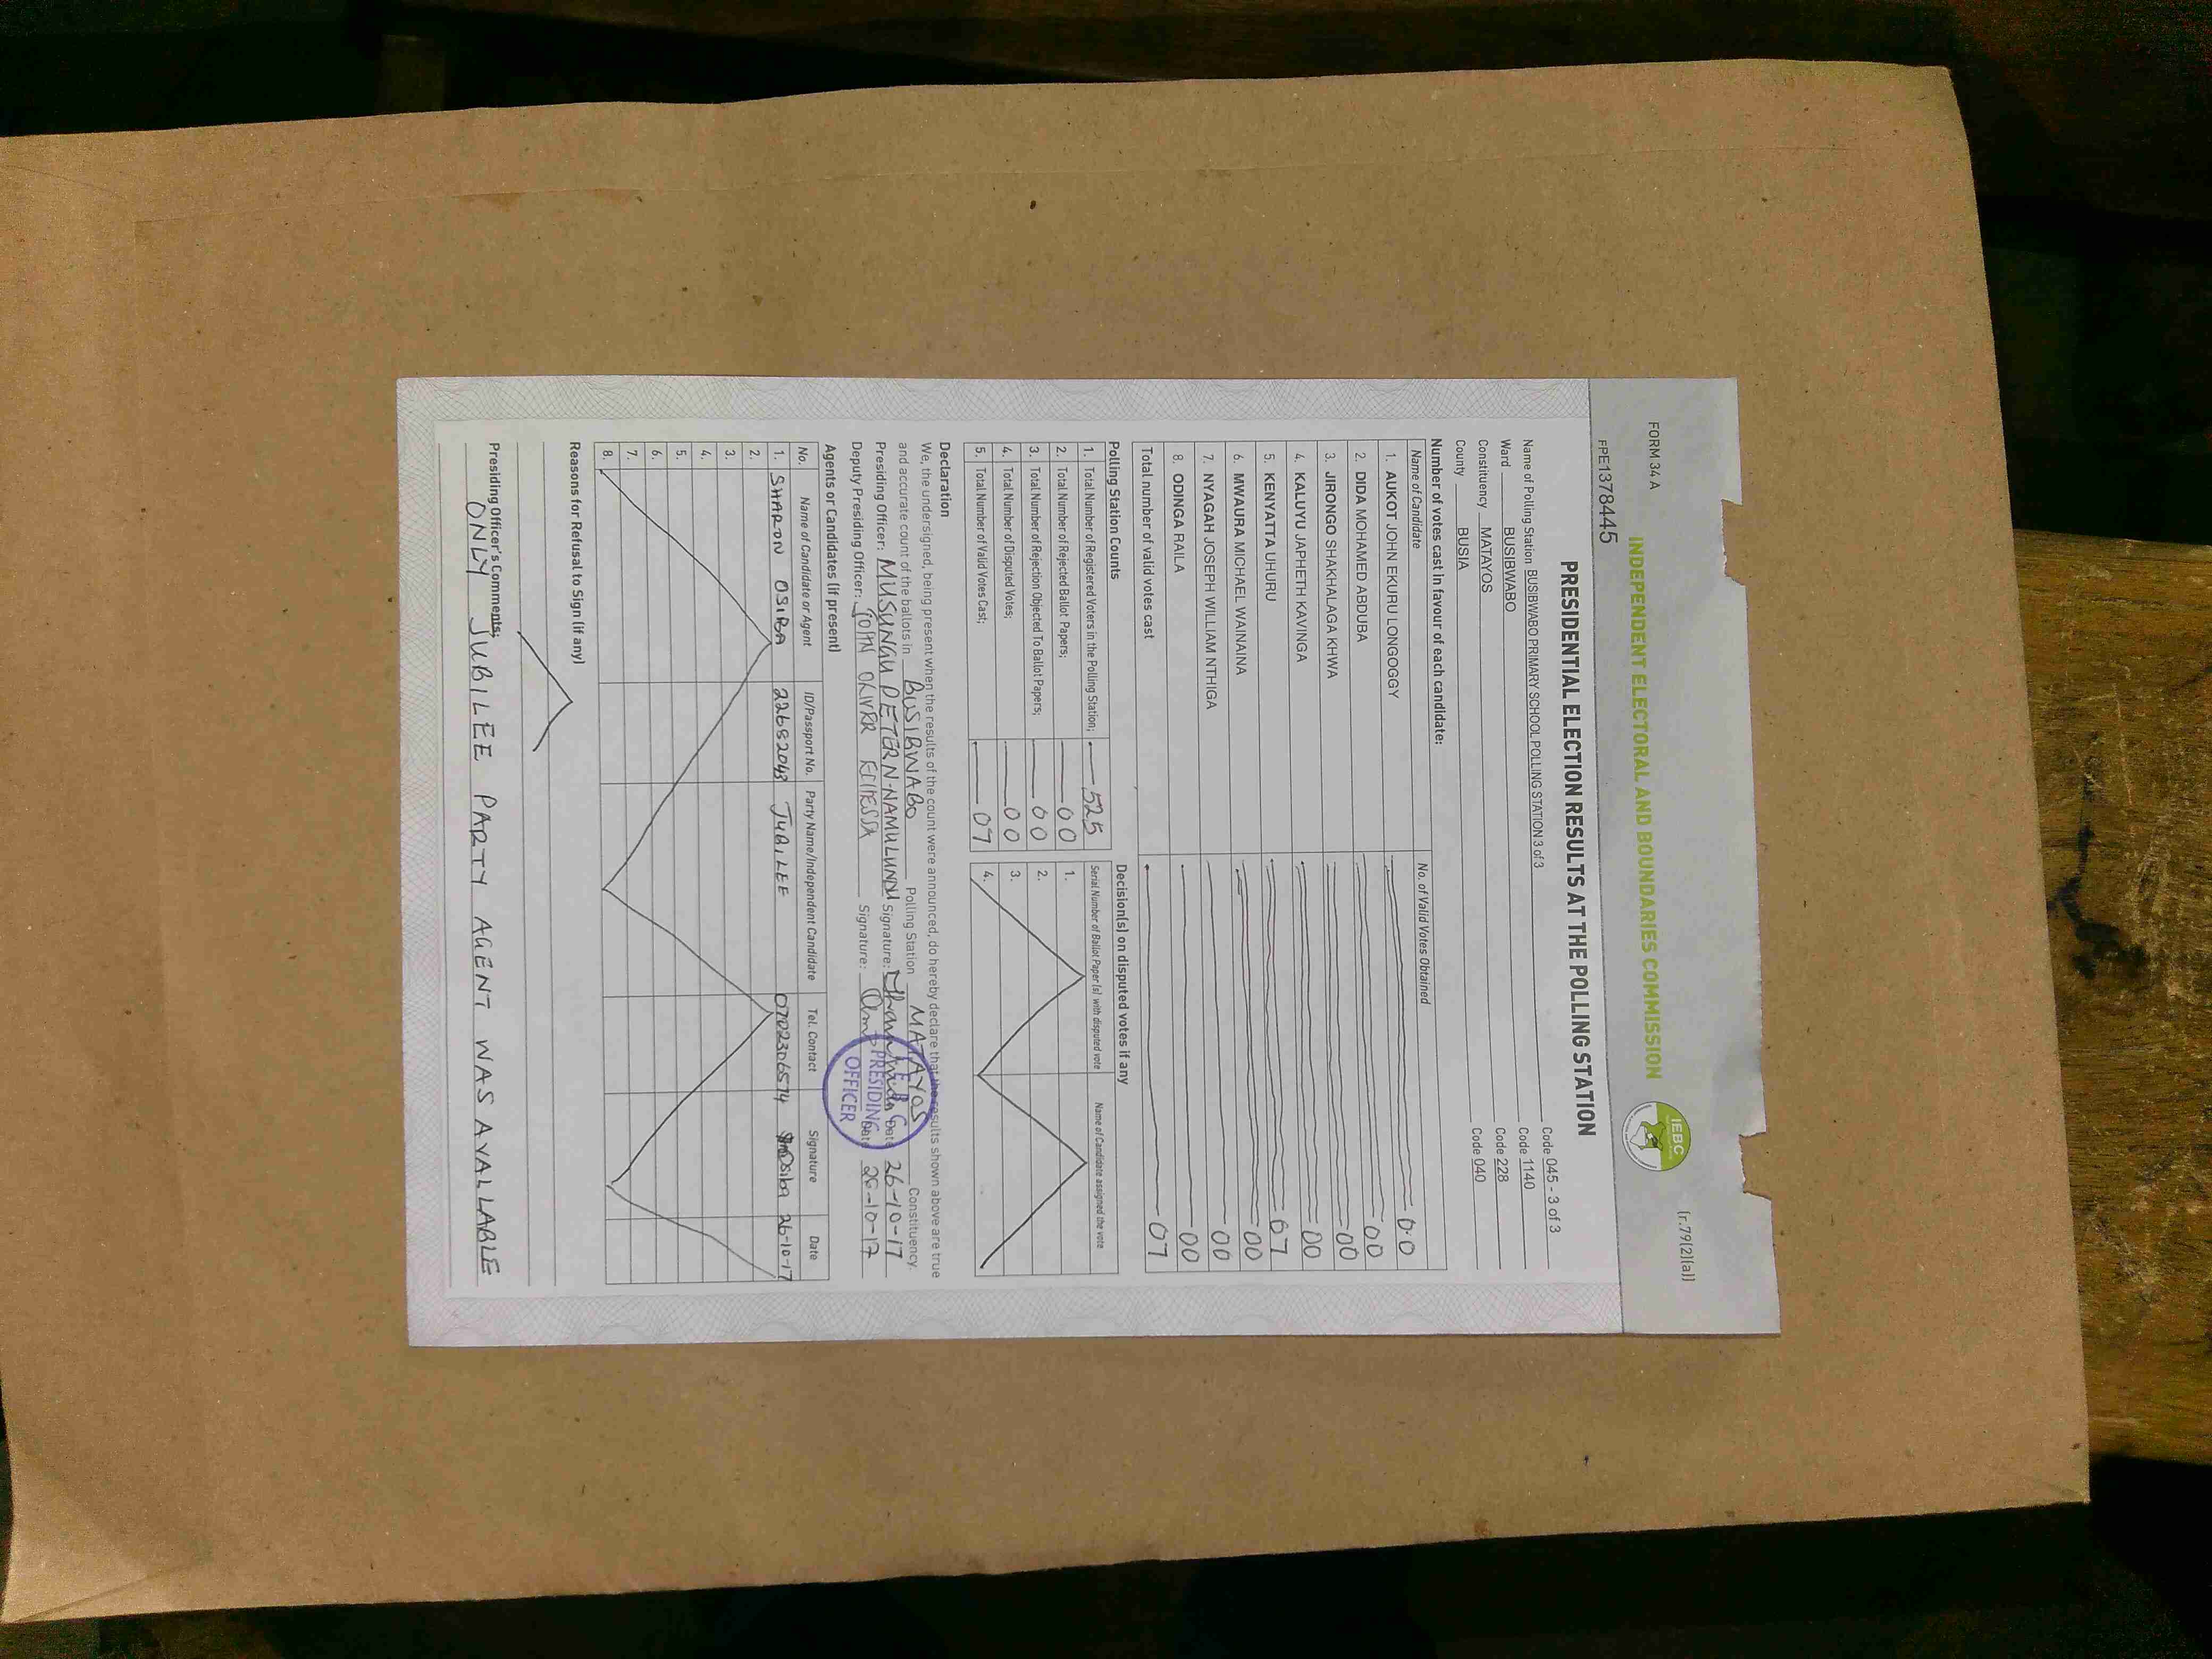 FORM 34A
(r.79(2)(a))
INDEPENDENT ELECTORAL AND BOUNDARIES COMMISSION
IEBC
FPE1378445
PRESIDENTIAL ELECTION RESULTS AT THE POLLING STATION
Name of Polling Station BUSIBWABO PRIMARY SCHOOL POLLING STATION 3 of 3 Code 045 - 3 of 3
Ward BUSIBWABO Code 1140
Constituency MATAYOS Code 228
County BUSIA Code 040
Number of votes cast in favour of each candidate:
Name of Candidate No. of Valid Votes Obtained
1. AUKOT JOHN EKURU LONGOGGY 00
2. DIDA MOHAMED ABDUBA 00
3. JIRONGO SHAKHALAGA KHWA 00
4. KALUYU JAPHETH KAVINGA 00
5. KENYATTA UHURU 07
6. MWAURA MICHAEL WAINAINA 00
7. NYAGAH JOSEPH WILLIAM NTHIGA 00
8. ODINGA RAILA 00
Total number of valid votes cast 07
Polling Station Counts
1. Total Number of Registered Voters in the Polling Station; 525
2. Total Number of Rejected Ballot Papers; 00
3. Total Number of Rejection Objected To Ballot Papers; 00
4. Total Number of Disputed Votes; 00
5. Total Number of Valid Votes Cast; 07
Decision(s) on disputed votes if any
Serial Number of Ballot Paper (s) with disputed vote Name of Candidate assigned the vote
1.
2.
3.
4.
Declaration
We, the undersigned, being present when the results of the count were announced, do hereby declare that the results shown above are true
and accurate count of the ballots in BUSIBWABO Polling Station MATAYOS Constituency.
Presiding Officer: MUSUNGU PETER N-NAMULUNDU Signature: Date 26-10-17
Deputy Presiding Officer: JOHN Signature: Date 26-10-17
IEBC
PRESIDING
OFFICER
Agents or Candidates (if present)
No. Name of Candidate or Agent ID/Passport No. Party Name/Independent Candidate Tel. Contact Signature Date
1. SHARON OSIBA 22682048 JUBILEE 0702306574 26-10-17
2.
3.
4.
5.
6.
7.
8.
Reasons for Refusal to Sign (if any)
Presiding Officer's Comments:
ONLY JUBILEE PARTY AGENT WAS AVAILLABLE